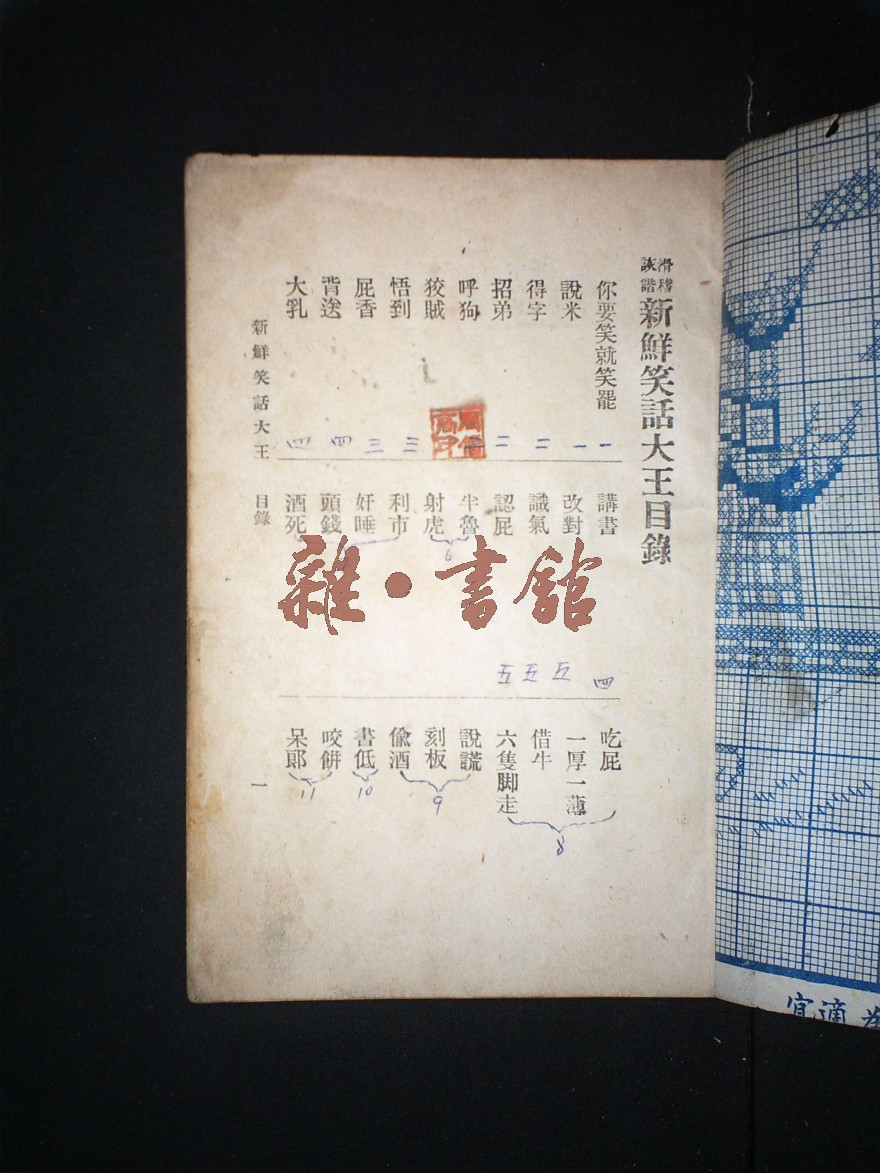 滑稽詼諧新鮮笑話大王目錄
你要笑就笑罷 一
說米 一
得字 二
招弟 二
呼狗 二
狡賊
悟到 三
屁香 三
背送 四
大乳 四
講書 四
改對 五
識氣 五
認屁 五
半魯
射虎
6
利市
奸睡
頭錢
酒死
吃屁
一厚一薄
借牛
六隻脚走
8
說謊
刻板
偸酒
9
書低
10
咬餅
呆郞
11
新鮮笑話大王 目錄 一
雜·書館
宜適